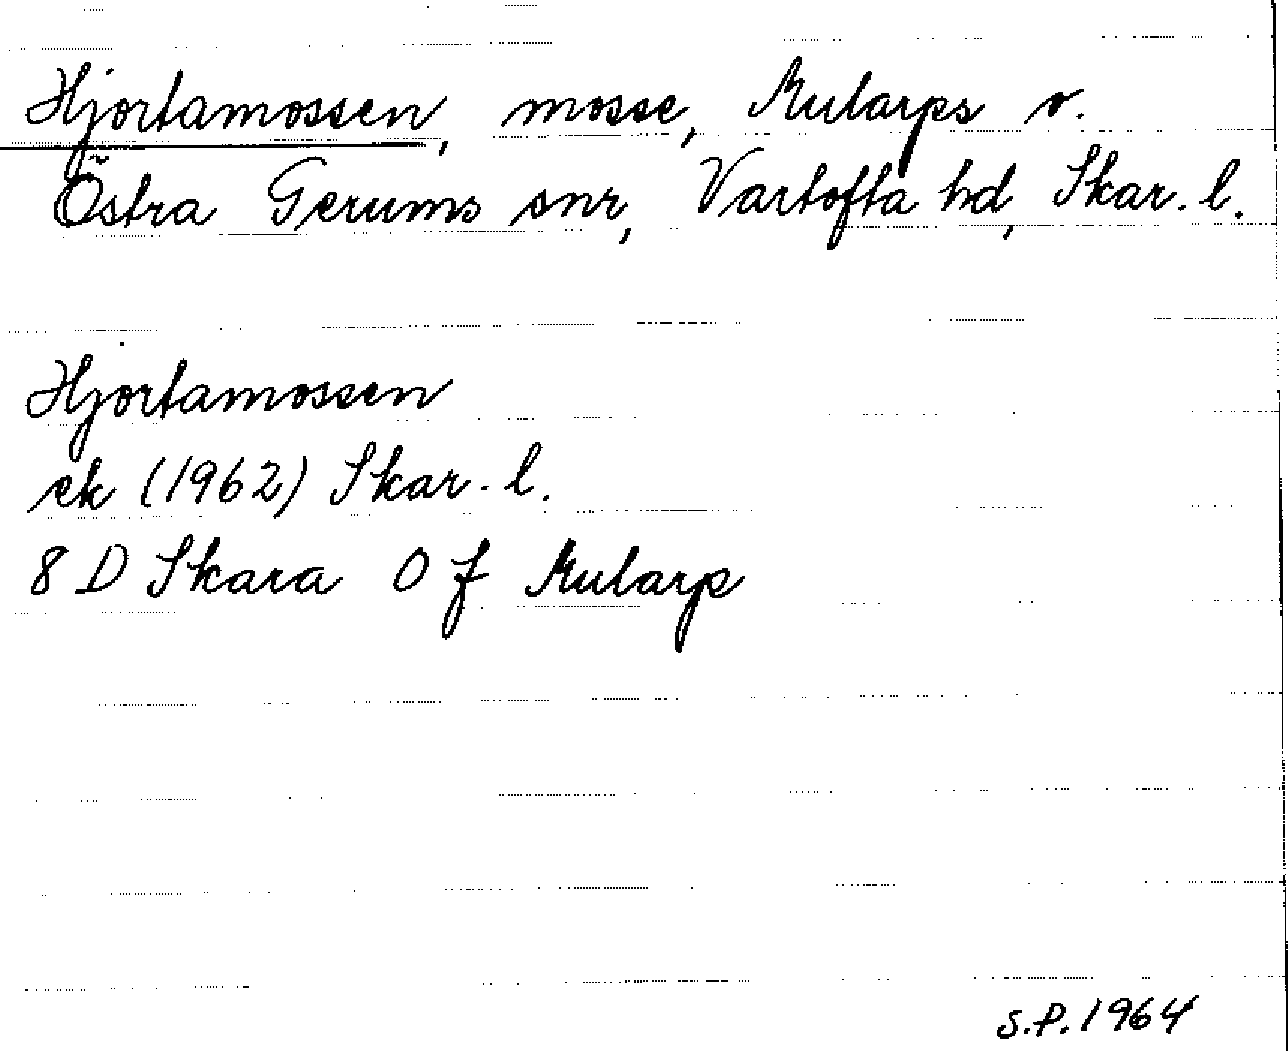 Hjortamossen, mosse, Mularps o.
Östra Gerums snr, Vartofta hd, Skar. l.
Hjortamossen
ek (1962) Skar. l.
8 D Skara 0 f Mularp
S.P. 1964